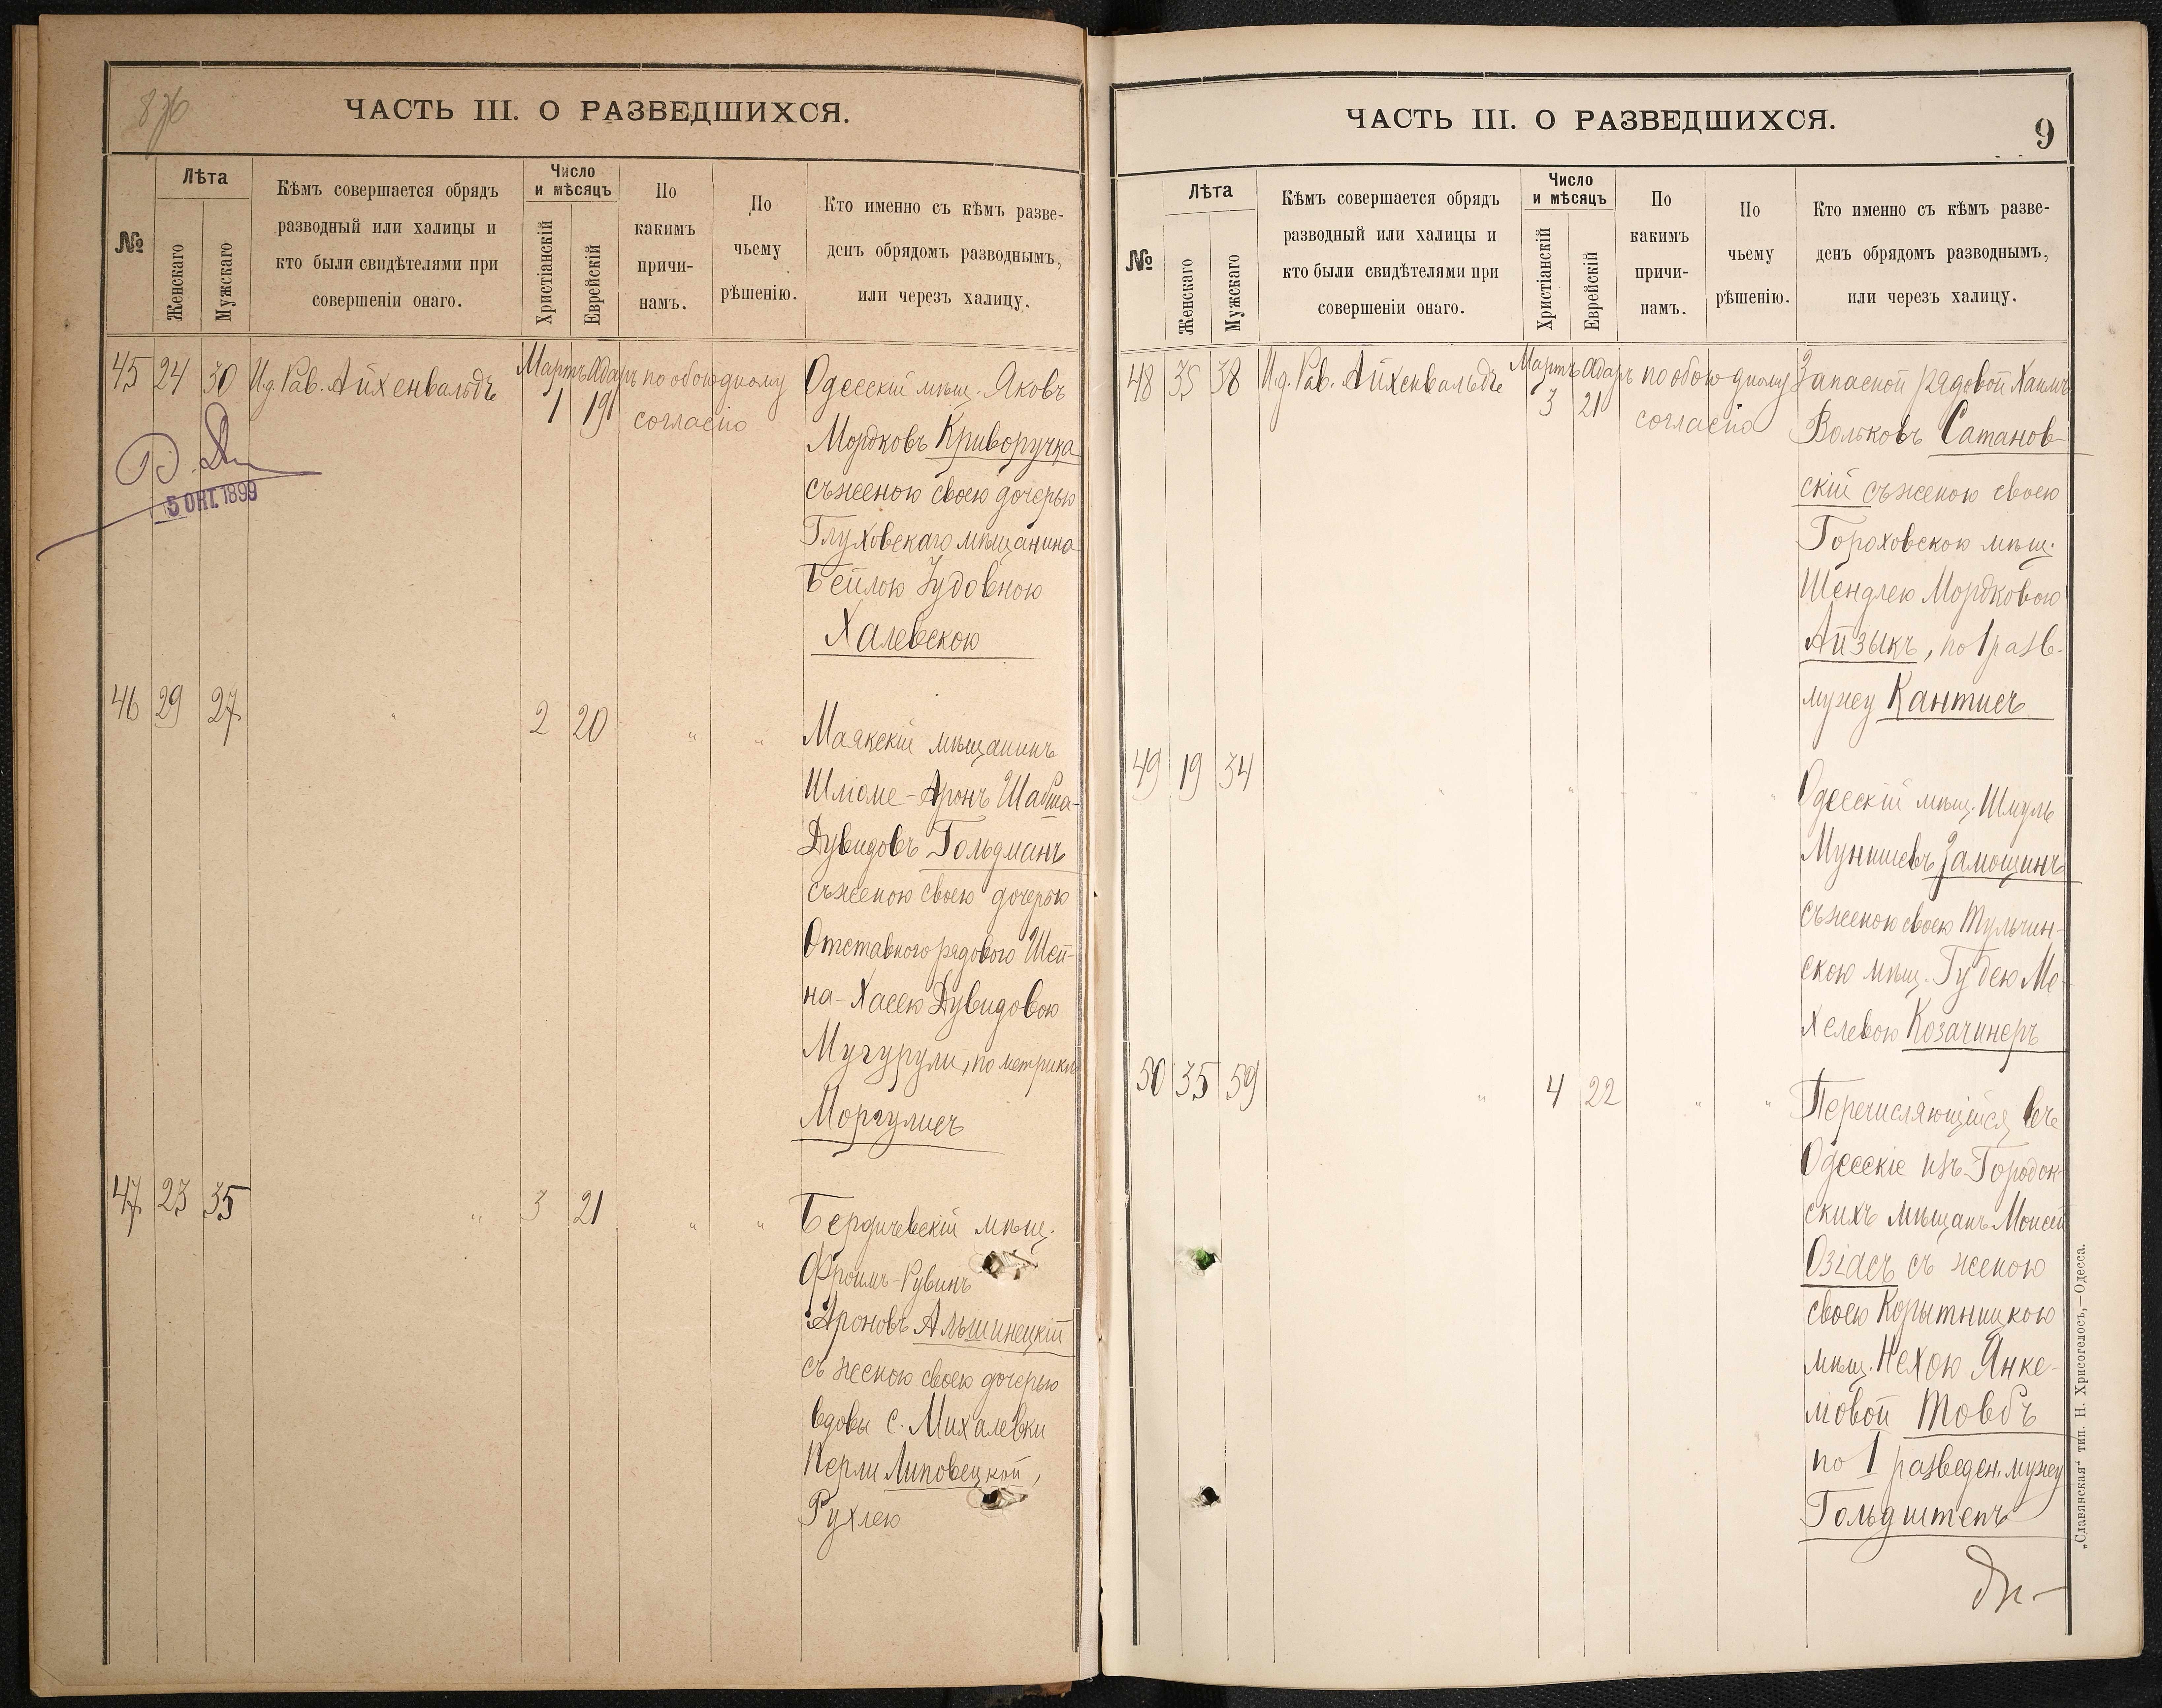 876
ЧАСТЬ III. О РАЗВЕДШИХСЯ.
№
Лѣта
Женскаго
Мужскаго
Кѣмъ совершается обрядъ
разводный или халицы и
кто были свидѣтелями при
совершеніи онаго.
Число
и мѣсяцъ
Христіанскій
Еврейскій
По
какимъ
причи-
намъ.
По
чьему
рѣшенію.
Кто именно съ кѣмъ разве-
денъ обрядомъ разводнымъ,
или черезъ халицу.
45 24 30 И.д. Рав. Айхенвальдъ Мартъ Адаръ по обоюдному Одесскій мѣщ. Яковъ
1 19 согласію Мордковъ Криворучка
съ женою своею дочерью
5 ОКТ. 1899
Глуховскаго мѣщанина
Бейлою Іудовною
Халевскою
46 29 27 " 2 20 " " Маякскій мѣщанинъ
Шліоме-Аронъ Шабша-
Дувидовъ Гольдманъ
съ женою своею дочерью
Отставного рядового Шей-
на-Хасею Дувидовою
Мугурули, по метрикѣ
Моргулисъ
47 23 35 " 3 21 " " Бердичевскій мѣщ.
Фроимъ-Рувинъ
Ароновъ Альшинецкій
съ женою своею дочерью
вдовы с. Михалевки
Перли Липовецкой,
Рухлею
ЧАСТЬ III. О РАЗВЕДШИХСЯ.
9
№
Лѣта
Женскаго
Мужскаго
Кѣмъ совершается обрядъ
разводный или халицы и
кто были свидѣтелями при
совершеніи онаго.
Число
и мѣсяцъ
Христіанскій
Еврейскій
По
какимъ
причи-
намъ.
По
чьему
рѣшенію.
Кто именно съ кѣмъ разве-
денъ обрядомъ разводнымъ,
или черезъ халицу.
48 35 38 И.д. Рав. Айхенвальдъ Мартъ Адаръ по обоюдному Запасной рядовой Хаимъ
3 21 согласію Вольковъ Сатанов-
скій съ женою своею
Гороховскою мѣщ.
Шендлею Мордковою
Айзыкъ, по 1 разв.
мужу Кантисъ
49 19 34 " " " " Одесскій мѣщ. Шмуль
Мунишевъ Замощинъ
съ женою своею Тульчин-
скою мѣщ. Гудею Ме-
хелевою Козачинеръ
50 35 59 " 4 22 " " Перечисляющійся въ
Одесскіе изъ Городок-
скихъ мѣщанъ Моисей
Озіасъ съ женою
своею Корытницкою
мѣщ. Нехою Янке-
левой Товбъ
по 1 разведен. мужу
Гольдштенъ
„Славянская“ тип. Н. Хрисогелосъ,—Одесса.